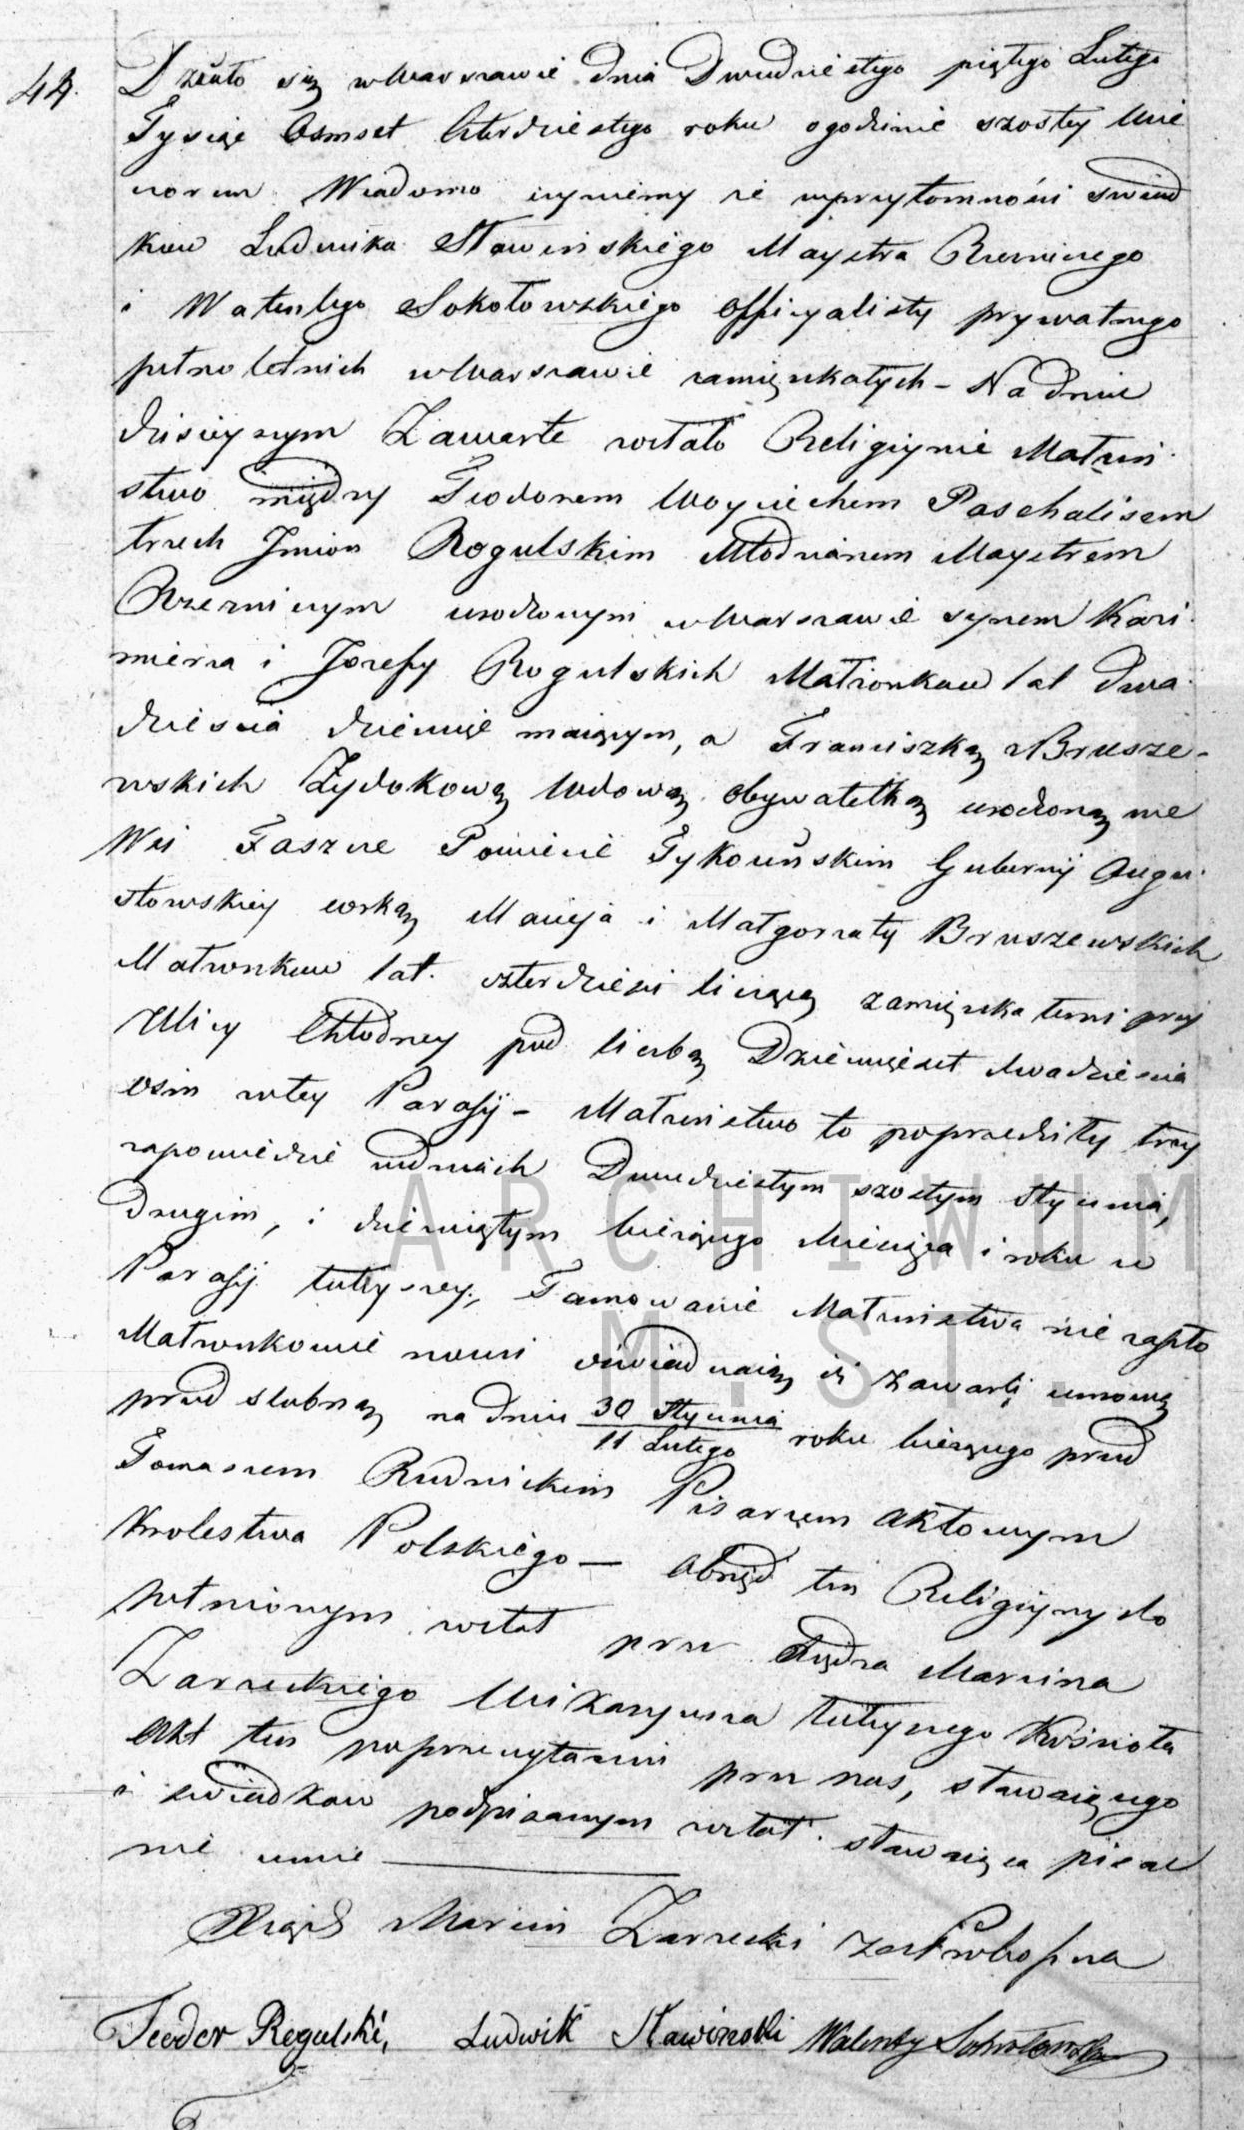 44.
Działo się w Warszawie dnia Dwudziestego piątego Lutego
Tysiąc Osmset Czterdziestego roku o godzinie szostey Wie
czorem Wiadomo czyniemy że w przytomności świad
kow Ludwika Sławińskiego Maystra Rzezniczego
i Walentego Sokołowskiego Officyalisty prywatnego
pełnoletnich w Warszawie zamięszkałych – Na dniu
dzisieyszym Zawarte zostało Religiynie Małżeń
stwo między Teodorem Woyciechem Paschalisem
trzech Jmion Rogulskim Młodzianem Maystrem
Rzezniczym urodzonym w Warszawie synem Kazi
mierza i Jozefy Rogulskich Małżonkow lat dwa
dzieścia dziewięć maiącym, a Franciszką z Brusze-
wskich Żydokową Wdową obywatelką urodzoną we
Wsi Faszcze Powiecie Tykocińskim Gubernij Augu
stowskiey corką Macieja i Małgorzaty Bruszewskich
Małżonkow lat czterdzieści liczącą zamięszkałemi przy
Ulicy Chłodney pod liczbą Dziewięćset dwadzieścia
osm w tey Parafij – Małżeństwo to poprzedziły trzy
zapowiedzie w dniach Dwudziestym szostym Stycznia,
Drugim, i dziewiątym bieżącego Miesiąca i roku w
Parafij tuteyszey, Tamowanie Małżeństwa nie zaszło
Małżonkowie nowi oświadczaią iż zawarli umowę
przedślubną na dniu 30 Stycznia / 11 Lutego roku bieżącego przed
Tomaszem Rudnickim Pisarzem aktowym
Krolestwa Polskiego — Obrzęd ten Religiyny do
pełnionym został przez Xiędza Marcina
Zarzeckiego Wikaryusza tuteyszego Kościoła
Akt ten po przeczytaniu przez nas, stawaiącego
i świadkow podpisanym został. stawaiąca pisać
nie umie
Xiądz Marcin Zarzecki Zast Proboszcza
Teodor Rogulski, Ludwik Sławinski Walenty Sokołowski
ARCHIWUM
M. ST.